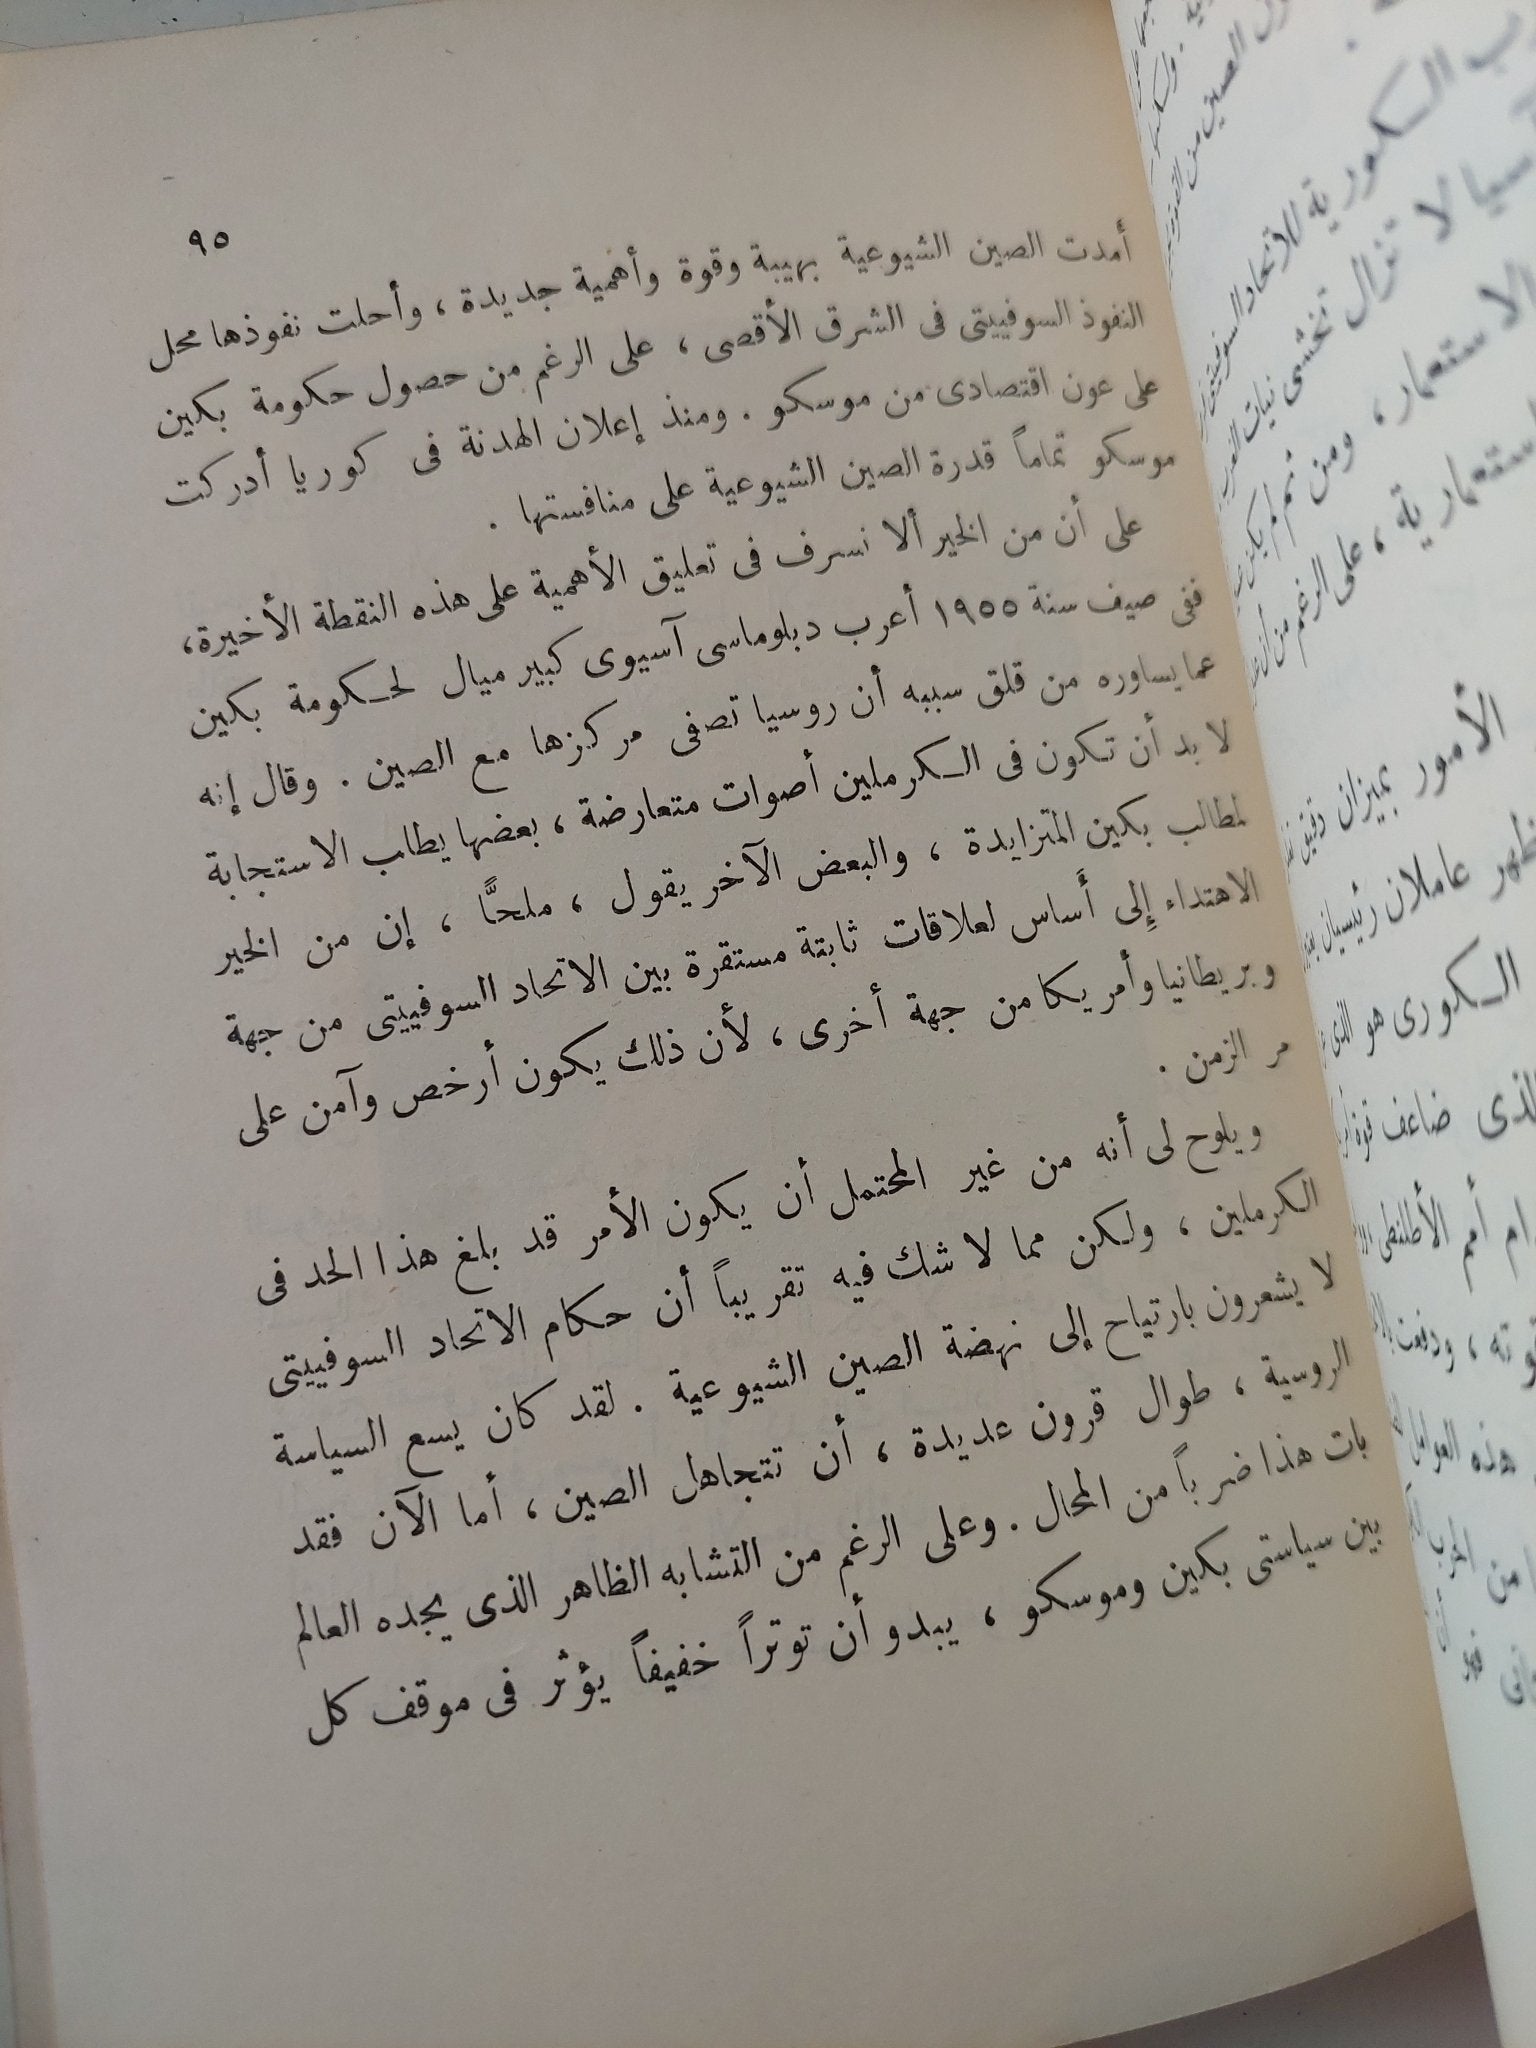 ٩٥
أمدت الصين الشيوعية بهيبة وقوة وأهمية جديدة ، وأحلت نفوذها محل
النفوذ السوفييتى فى الشرق الأقصى ، على الرغم من حصول حكومة بكين
على عون اقتصادى من موسكو . ومنذ إعلان الهدنة فى كوريا أدركت
موسكو تماماً قدرة الصين الشيوعية على منافستها .
على أن من الخير ألا نسرف فى تعليق الأهمية على هذه النقطة الأخيرة،
ففى صيف سنة ١٩٥٥ أعرب دبلوماسى آسيوى كبير ميال لحكومة بكين
عما يساوره من قلق سببه أن روسيا تصفى مركزها مع الصين . وقال إنه
لا بد أن تكون فى الكرملين أصوات متعارضة ، بعضها يطلب الاستجابة
لمطالب بكين المتزايدة ، والبعض الآخر يقول ، ملحًّا ، إن من الخير
الاهتداء إلى أساس لعلاقات ثابتة مستقرة بين الاتحاد السوفييتى من جهة
وبريطانيا وأمريكا من جهة أخرى ، لأن ذلك يكون أرخص وآمن على
مر الزمن .
ويلوح لى أنه من غير المحتمل أن يكون الأمر قد بلغ هذا الحد فى
الكرملين ، ولكن مما لا شك فيه تقريباً أن حكام الاتحاد السوفييتى
لا يشعرون بارتياح إلى نهضة الصين الشيوعية . لقد كان يسع السياسة
الروسية ، طوال قرون عديدة ، أن تتجاهل الصين ، أما الآن فقد
بات هذا ضرباً من المحال . وعلى الرغم من التشابه الظاهر الذى يجده العالم
بين سياستى بكين وموسكو ، يبدو أن توتراً خفيفاً يؤثر فى موقف كل
الصين من
الكورية للاتحاد السوفييتى
لا تزال تخشى نيات الغرب
الاستعمار ، ومن ثم لم يكن
على الرغم من أن
الأمور بميزان دقيق
عاملان رئيسيان
الكورى هو الذى
ضاعف قوة
أمم الأطلنطى
هذه العوامل
من الحرب